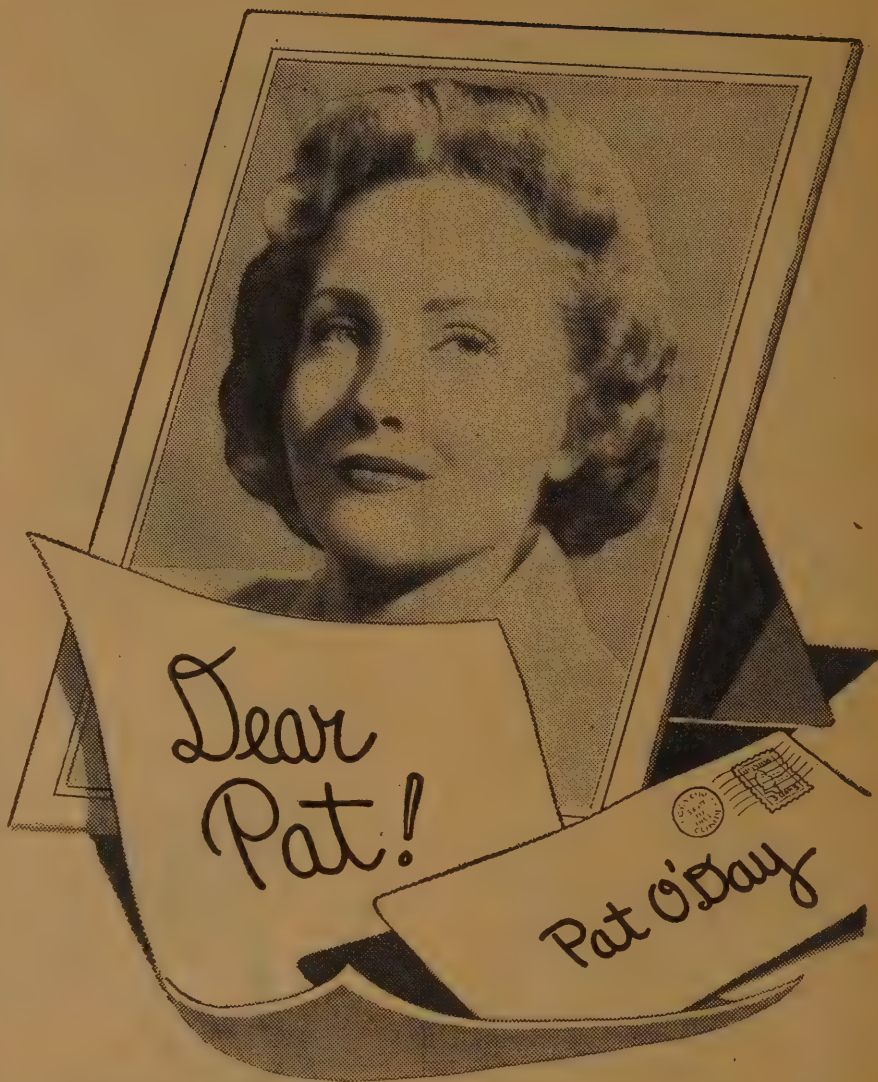 Dear
Pat!
Pat O'Day